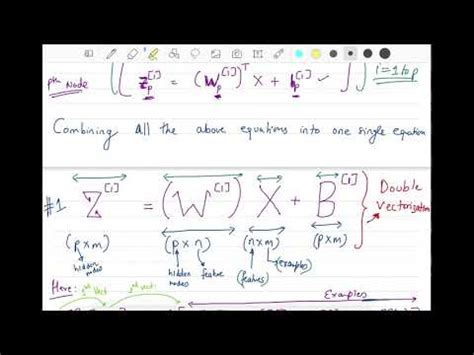 pth Node z_p^[1] = (w_p^[1])^T X + b_p^[1] i=1 to p
Combining all the above equations into one single equation
#1 Z^[1] = (W^[1]) X + B^[1] Double Vectorization
(p×m) (p×n) (n×m) (p×m)
hidden nodes hidden nodes feature (features) (examples)
Here:
Examples